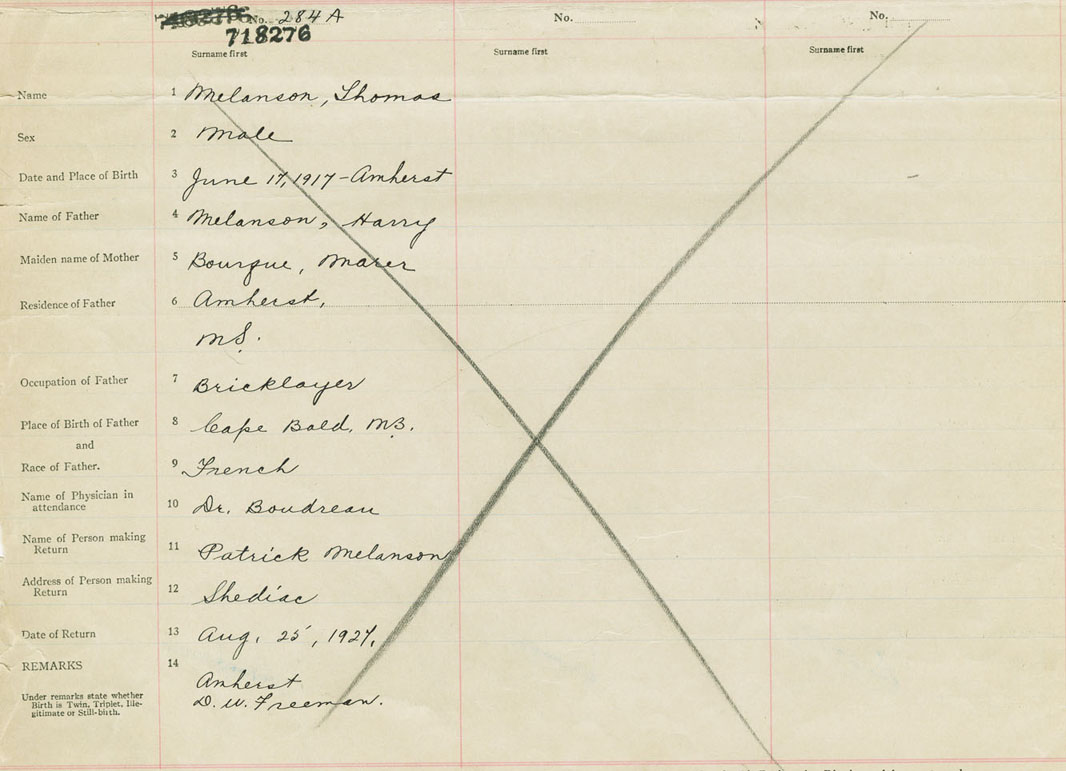 No. 284 A No. No.
718276
Surname first Surname first Surname first
Name 1 Melanson, Thomas
Sex 2 Male
Date and Place of Birth 3 June 17, 1917 - Amherst
Name of Father 4 Melanson, Harry
Maiden name of Mother 5 Bourque,
Residence of Father 6 Amherst,
N.S.
Occupation of Father 7 Bricklayer
Place of Birth of Father 8 Cape Bald, N.B.
and
Race of Father. 9 French
Name of Physician in
attendance 10 Dr. Boudreau
Name of Person making
Return 11 Patrick Melanson
Address of Person making
Return 12 Shediac
Date of Return 13 Aug. 25, 1927.
REMARKS 14
Amherst
Under remarks state whether
Birth is Twin, Triplet, Ille-
gitimate or Still-birth.
D. W. Freeman.